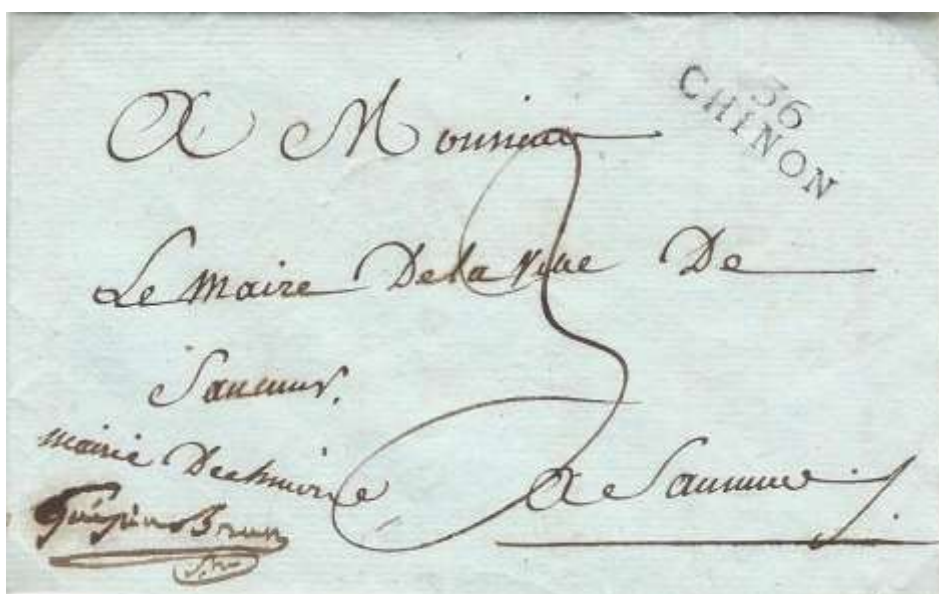 36
CHINON
A Monsieur
Le Maire De la Ville De
Saumur.
Mairie De chinon
3
A Saumur